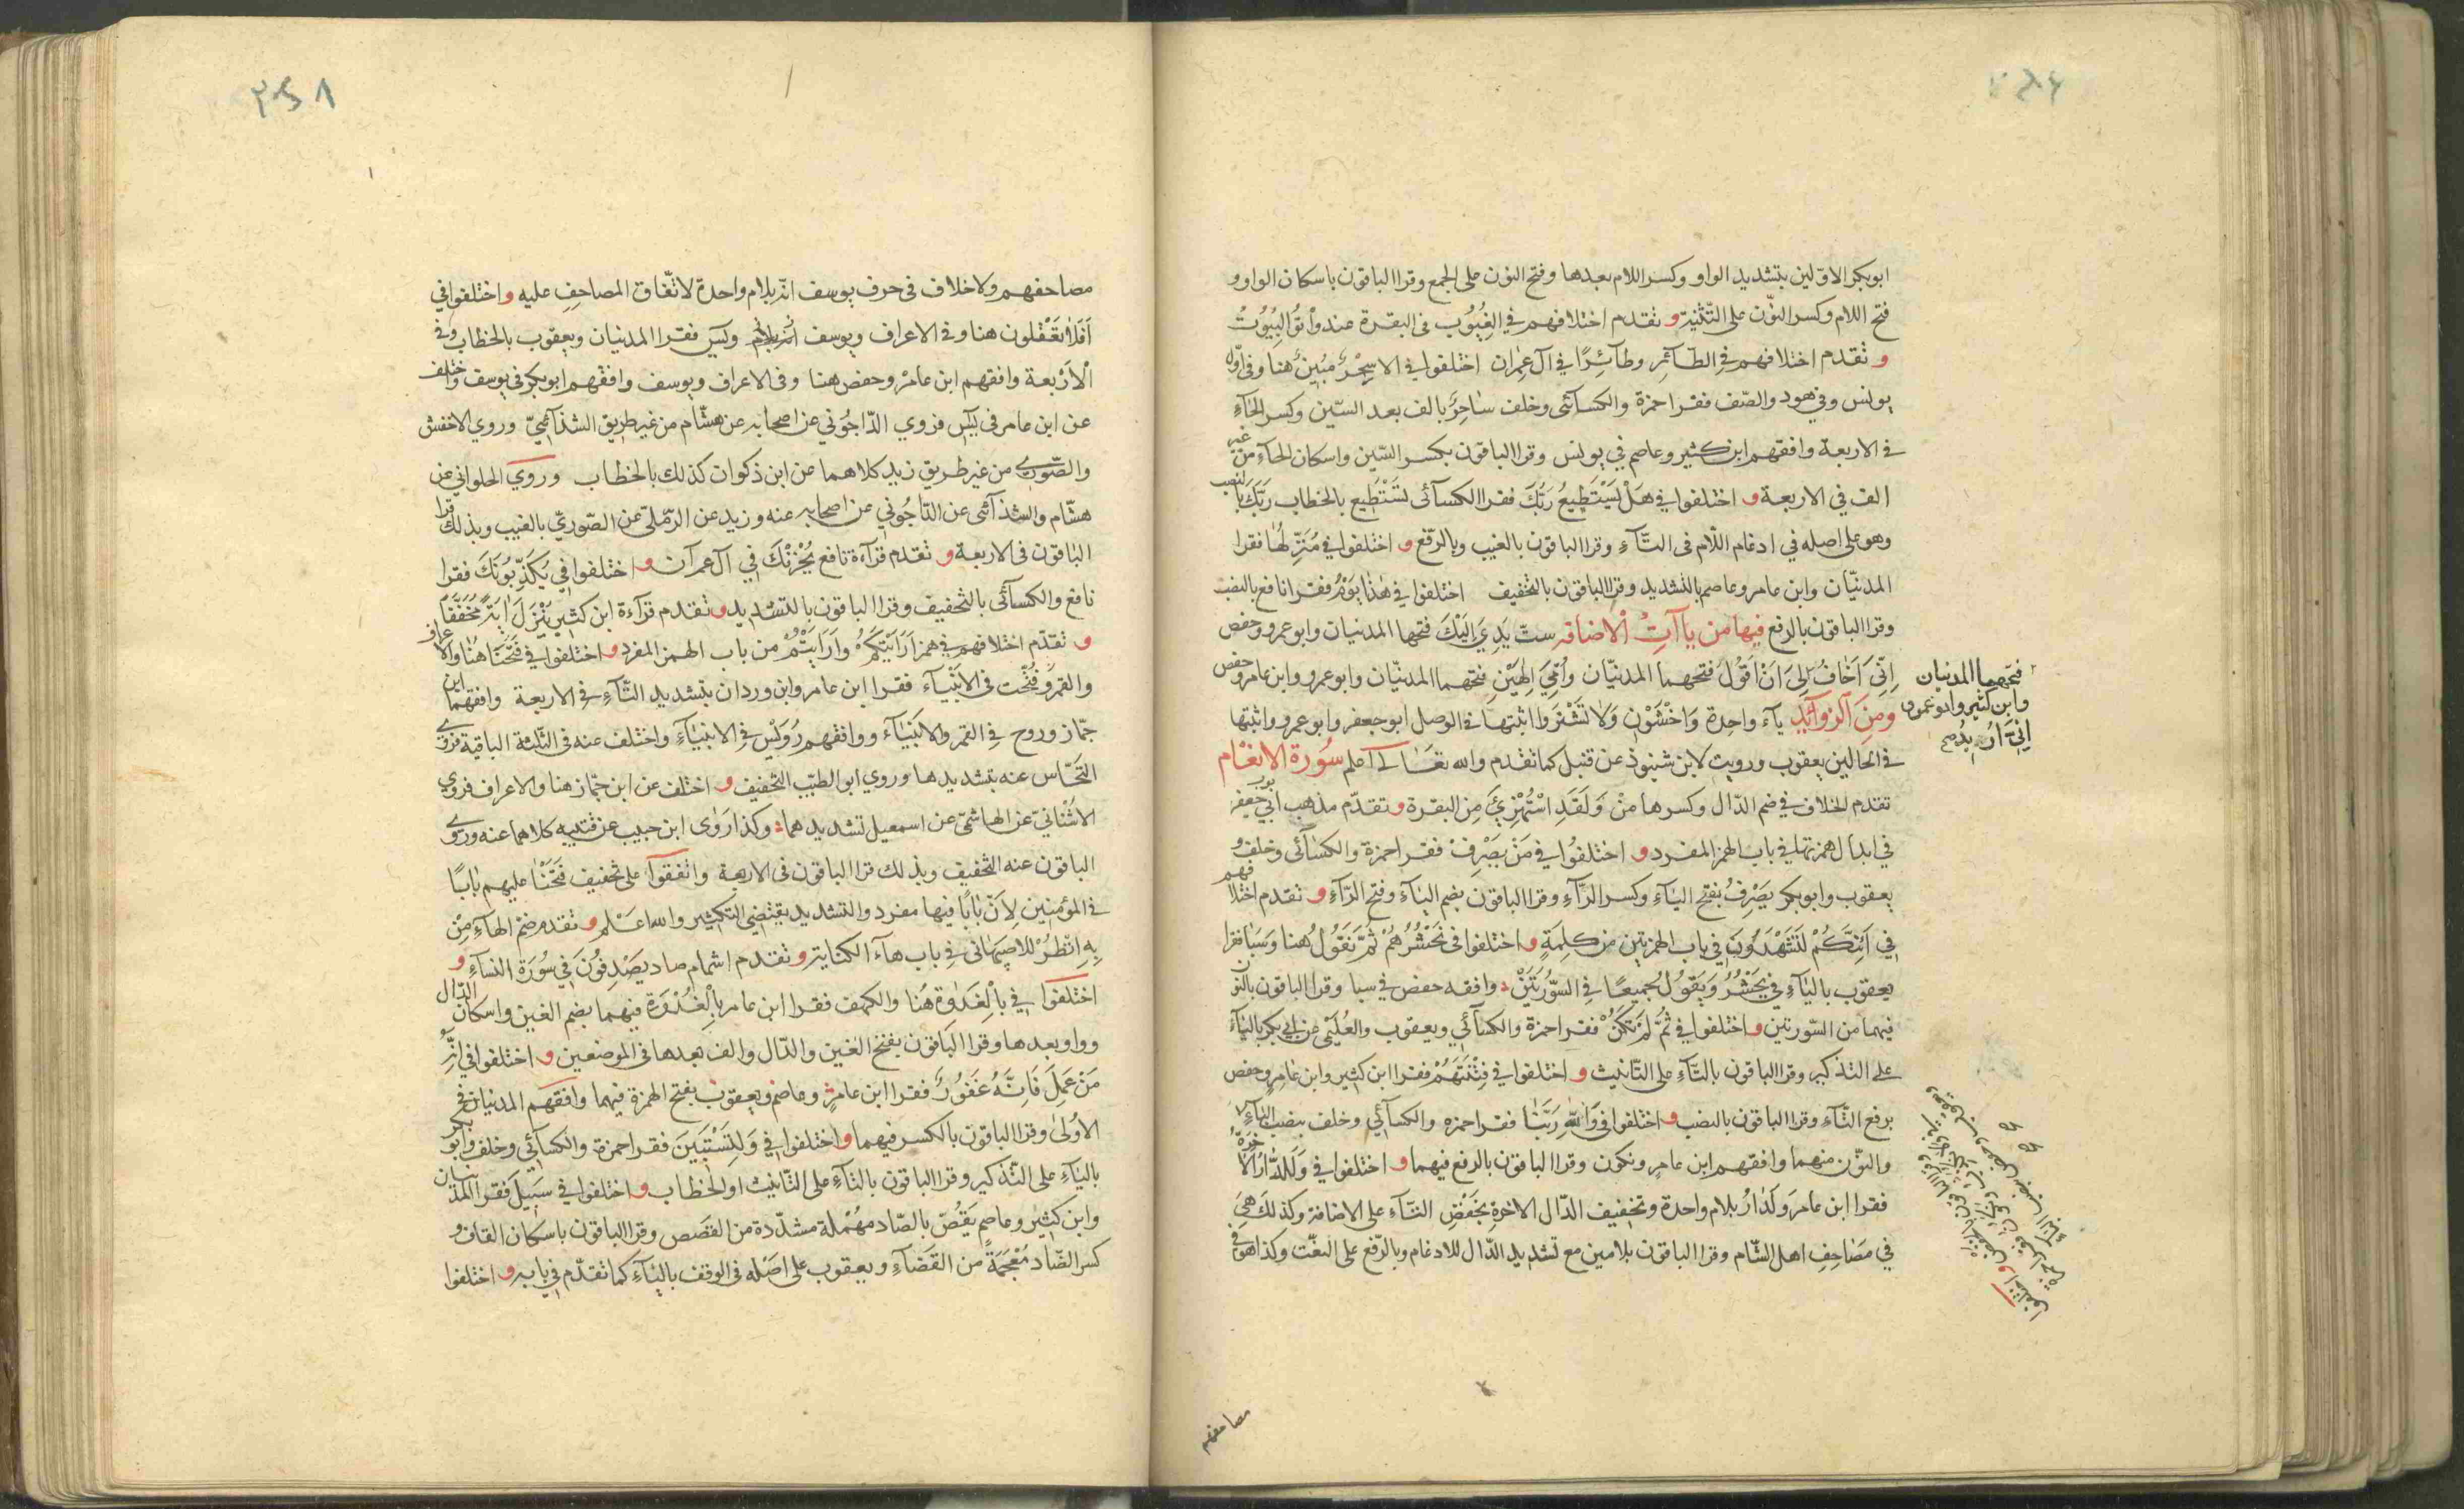 ابوبكر الاوّلين بتشديد الواو وكسر اللام بعدها وفتح النون على الجمع وقرا الباقون باسكان الواو و
فتح اللام وكسر النوّن على التّثنية و تقدم اختلافهم في الغِيُوُب في البقرة عند وأتوُا البِيُوُتَ
و تقدم اختلافهم في الطّآئِر وطآئِرًا في آل عِمران اختلفوا في الا سِحْرٌ مُبِينٌ هنا وفي اوّل
يونس وفي هود والصّف فقرا حمزة والكسآئى وخلف سَاحِرٌ بالف بعد السّين وكسر الحآءِ
في الاربعة وافقهم ابن كثير وعاصم في يونس وقرا الباقون بكسر السّين واسكان الحآءِ من غير
الف في الاربعة و اختلفوا في هَلْ يَسْتَطِيعُ رَبُّكَ فقرا الكسآئى تَسْتَطِيع بالخطاب رَبَّكَ بالنصب
وهو على اصله في ادغام اللّام فى التّآءِ وقرا الباقون بالغيب وبالرّفع و اختلفوا في مُنَزِّلُهَا فقرا
المدنيّان وابن عامر وعاصم بالتشديد وقرا الباقون بالتخفيف اختلفوا في هٰذا يَوْمُ فقرا نافع بالنصب
وقرا الباقون بالرفع فيها من يآآتِ الاضافه ستّ يَدِيَ اِلَيْكَ فتحها المدنيان وابو عمرو وحفص
اِنِّيَ اَخَافُ لِيَ اَنْ اَقُولَ فتحهما المدنيّان وَاُمِّيَ اِلٰهَيْنِ فتحهما المدنيّان وابو عمرو وابن عامر وحفص
وَمِنَ الزوآئِدِ يآء واحدة وَاخْشَوْنِ وَلَا تَشْتَروا اثبتها في الوصل ابو جعفر وابو عمرو واثبتها
في الحالين يعقوب ورويت لابن شنبوذ عن قنبل كما تقدم والله تعَالى اعلم سُورة الانعَام
تقدم الخلاف في ضم الدّال وكسرها مِنْ وَلَقَدِ اسْتُهْزِئَ مِن البقرة و تقدّم مذهب ابي جعفر
في ابدال همزتها في باب الهمز المفرد و اختلفُوا في مَنْ يُصْرَفْ فقرا حمزة والكسآئى وخلف و
يعقوب وابوبكر يَصْرِفُ بفتح اليآءِ وكسر الرّآءِ وقرا الباقون بضم اليآءِ وفتح الرّآءِ و تقدم اختلافهم
في اَئِنَّكُمْ لَتَشْهَدُونَ في باب الهمزتين من كلمةٍ و اختلفوا فى نَحْشُرُهُمْ ثُمَّ نَقُولُ هنا وَسَبَا فقرا
يعقوب باليآءِ في يَحْشُرُ وَيَقُولُ جَمِيعًا في السُّورَتَيْنِ وافقه حفص في سبا وقرا الباقون بالنون
فيهما من السّورتين و اختلفوا في ثُمَّ لَمْ تَكُنْ فقرا حمزة والكسآئي ويعقوب والعُلَيْمِي عن ابي بكر باليآءِ
على التذكير وقرا الباقون بالتّآءِ على التّانيث و اختلفوا في فِتْنَتَهُمْ فقرا ابن كثير وابن عَامِرٍ وحفص
برفع التّآء وقرا الباقون بالنصب و اختلفوا فى وَاللّٰهِ رَبَّنَا فقرا حمزه والكسآئي وخلف بنصب البآءِ
والنوّن منهما وافقهم ابن عامر ونكون وقرا الباقون بالرفع فيهما و اختلفوا في وَلَلدَّارُ الْاٰخِرَةُ
فقرا ابن عامر وَلَدارُ بلام واحدة وتخفيف الدّال الاخرةِ بخَفْضِ التّآءِ على الاضافة وكذلك هِيَ
في مَصَاحِفِ اهل الشّام وقرا الباقون بلامين مع تشديد الدّال للادغام وبالرّفع على النعّت وكذا هو في
فتحهما المدنيان
وابن كثير وابو عمرو
اِنِّيَ اُرِيدُ صح
مصاحفهم
٣٥٨
مصاحفهم ولا خلاف فى حرف يوسف انّه بلام واحدة لاتّفاق المصاحِفِ عليه و اختلفوا في
اَفَلَا تَعْقِلُون هنا وفي الاعراف ويوسف ويٓسٓ فقرا المدنيان ويعقوب بالخطاب في
الْاَرْبعة وافقهم ابن عامرْ وحفص هنا وفى الاعراف ويوسف وافقهم ابوبكر في يوسف واختلف
عن ابن عامر فى يٓسٓ فروي الدّاجُوني عن اصحابه عن هشّام من غير طريق الشذآئيّ وروي الاخفش
والصّورى من غير طريق زيد كلاهما عن ابن ذكوان كذلك بالخطاب وروي الحلواني عن
هشّام والشذآئى عن الدّاجُوني عن اصحابه عنه وزيد عن الرّملى عن الصّوريّ بالغيب وبذلك قرا
الباقون فى الاربعة و تقدم قرآءة نافع يُحْزِنْكَ في آل عمرآن و اختلفوا في يُكَذِّبُونَكَ فقرا
نافع والكسآئى بالتخفيف وقرا الباقون بالتشديد و تقدم قرآءة ابن كثير يُنْزِلَ اٰيَةً مُخَفَّفًا
و تقدّم اختلافهم في همز اَرَاَيْتَكُمْ وَاَرَاَيْتُمْ من باب الهمز المفرد و اختلفوا في فَتَحْنَا هُنَا والاعراف
والقمر وَفُتِحَت فى الانبيَآء فقرا ابن عامر وابن وردان بتشديد التّآءِ في الاربعة وافقهما ابن
جمّاز وروح في القمر والانبيَآء ووافقهم رُوَيْس في الانبيَآءِ واختلف عنه فى الثلثة الباقية فروى
النَّحّاس عنه بتشديدها وروي ابو الطيّب التخفيف و اختلف عن ابن جمّاز هنا والاعراف فروي
الاشْنانيّ عن الهاشميّ عن اسمعيل تشديدهما وكذا رَوٰى ابن حبيب عن قتيبه كلاهما عنه وروى
الباقون عنه التخفيف وبذلك قرا الباقون فى الاربعة واتّفقوا على تخفيف فَتَحْنَا عليهم بَابًا
في المؤمنين لِاَنّ بَابًا فيها مفرد والتشديد يقتضى التكثير والله اعْلم و تقدم ضمّ الهآءِ مِنْ
بِهِ انْظُرْ للاصبَهَانى في باب هآء الكناية و تقدم اشمام صاد يَصْدِفُونَ في سُورَة النسآءِ و
اختلفوا في بِالْغَدَاوة هُنا والكهف فقرا ابن عامر بالْغُدْوَة فيهما بضم الغين واسكان الدّال
وواو بعدها وقرا البَاقون بفتح الغين والدّال والف بعدها فى الموضعين و اختلفوا في اَنَّهُ
مَنْ عَمِلَ فَاِنَّهُ غَفُورٌ فقرا ابن عامرٍ وعاصم ويعقوبُ بفتح الهمزة فيهما وافقهم المدنيان في
الاوُلىٰ وقرا الباقون بالكسر فيهما و اختلفوا في وَلِتَسْتَبِيَنَ فقرا حمزة والكسآئى وخلف وابوبكر
باليآءِ على التّذكير وقرا الباقون بالتآءِ على التّانيث او الخطاب و اختلفوا في سَبِيلَ فقرا المدنيان
وابن كثير وعاصم يَقُصّ بالصّاد مهْمَلة مشدّدة من القَصَص وقرا الباقون باسكان القاف و
كسر الضّاد مُعْجَمَة من القَضَآءِ ويعقوب على اصْله في الوقف باليآءِ كما تقدّم في بابه و اختلفوا